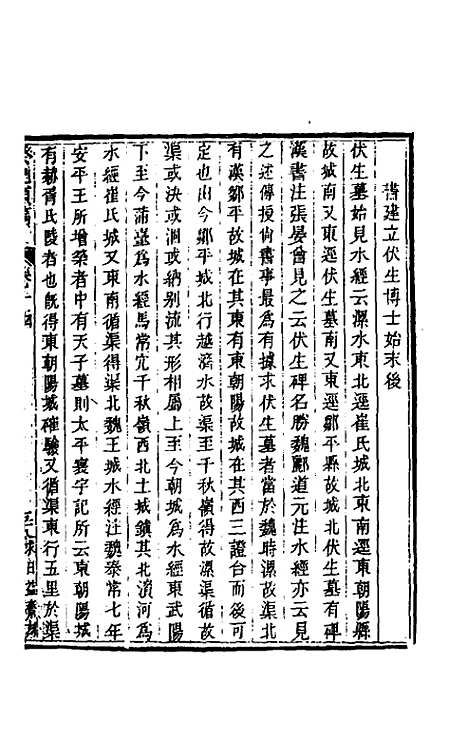 書建立伏生博士始末後
伏生墓始見水經云漯水東北逕崔氏城北東南逕東朝陽縣
故城南又東逕伏生墓南又東逕鄒平縣故城北伏生墓有碑
漢書注張晏曾見之云伏生碑名勝魏酈道元注水經亦云見
之述傳授尚書事最爲有據求伏生墓者當於魏時漯渠北
有漢鄒平故城在其東有東朝陽故城在其西三證合而後可
定也由今鄒平城北行越濟水故渠得千秋嶺得故漯渠循故
渠或決或涸或納别流其形相屬上至今朝城爲水經東武陽
下至今蒲臺爲水經馬常宂千秋嶺西北土城鎮其北瀆河爲
水經崔氏城又東南循渠得渠北魏王城水經注魏泰常七年
安平王所增築者中有天子墓則太平寰宇記所云東朝陽城
有赫胥氏陵者也旣得東朝陽城確驗又循渠東行五里於渠